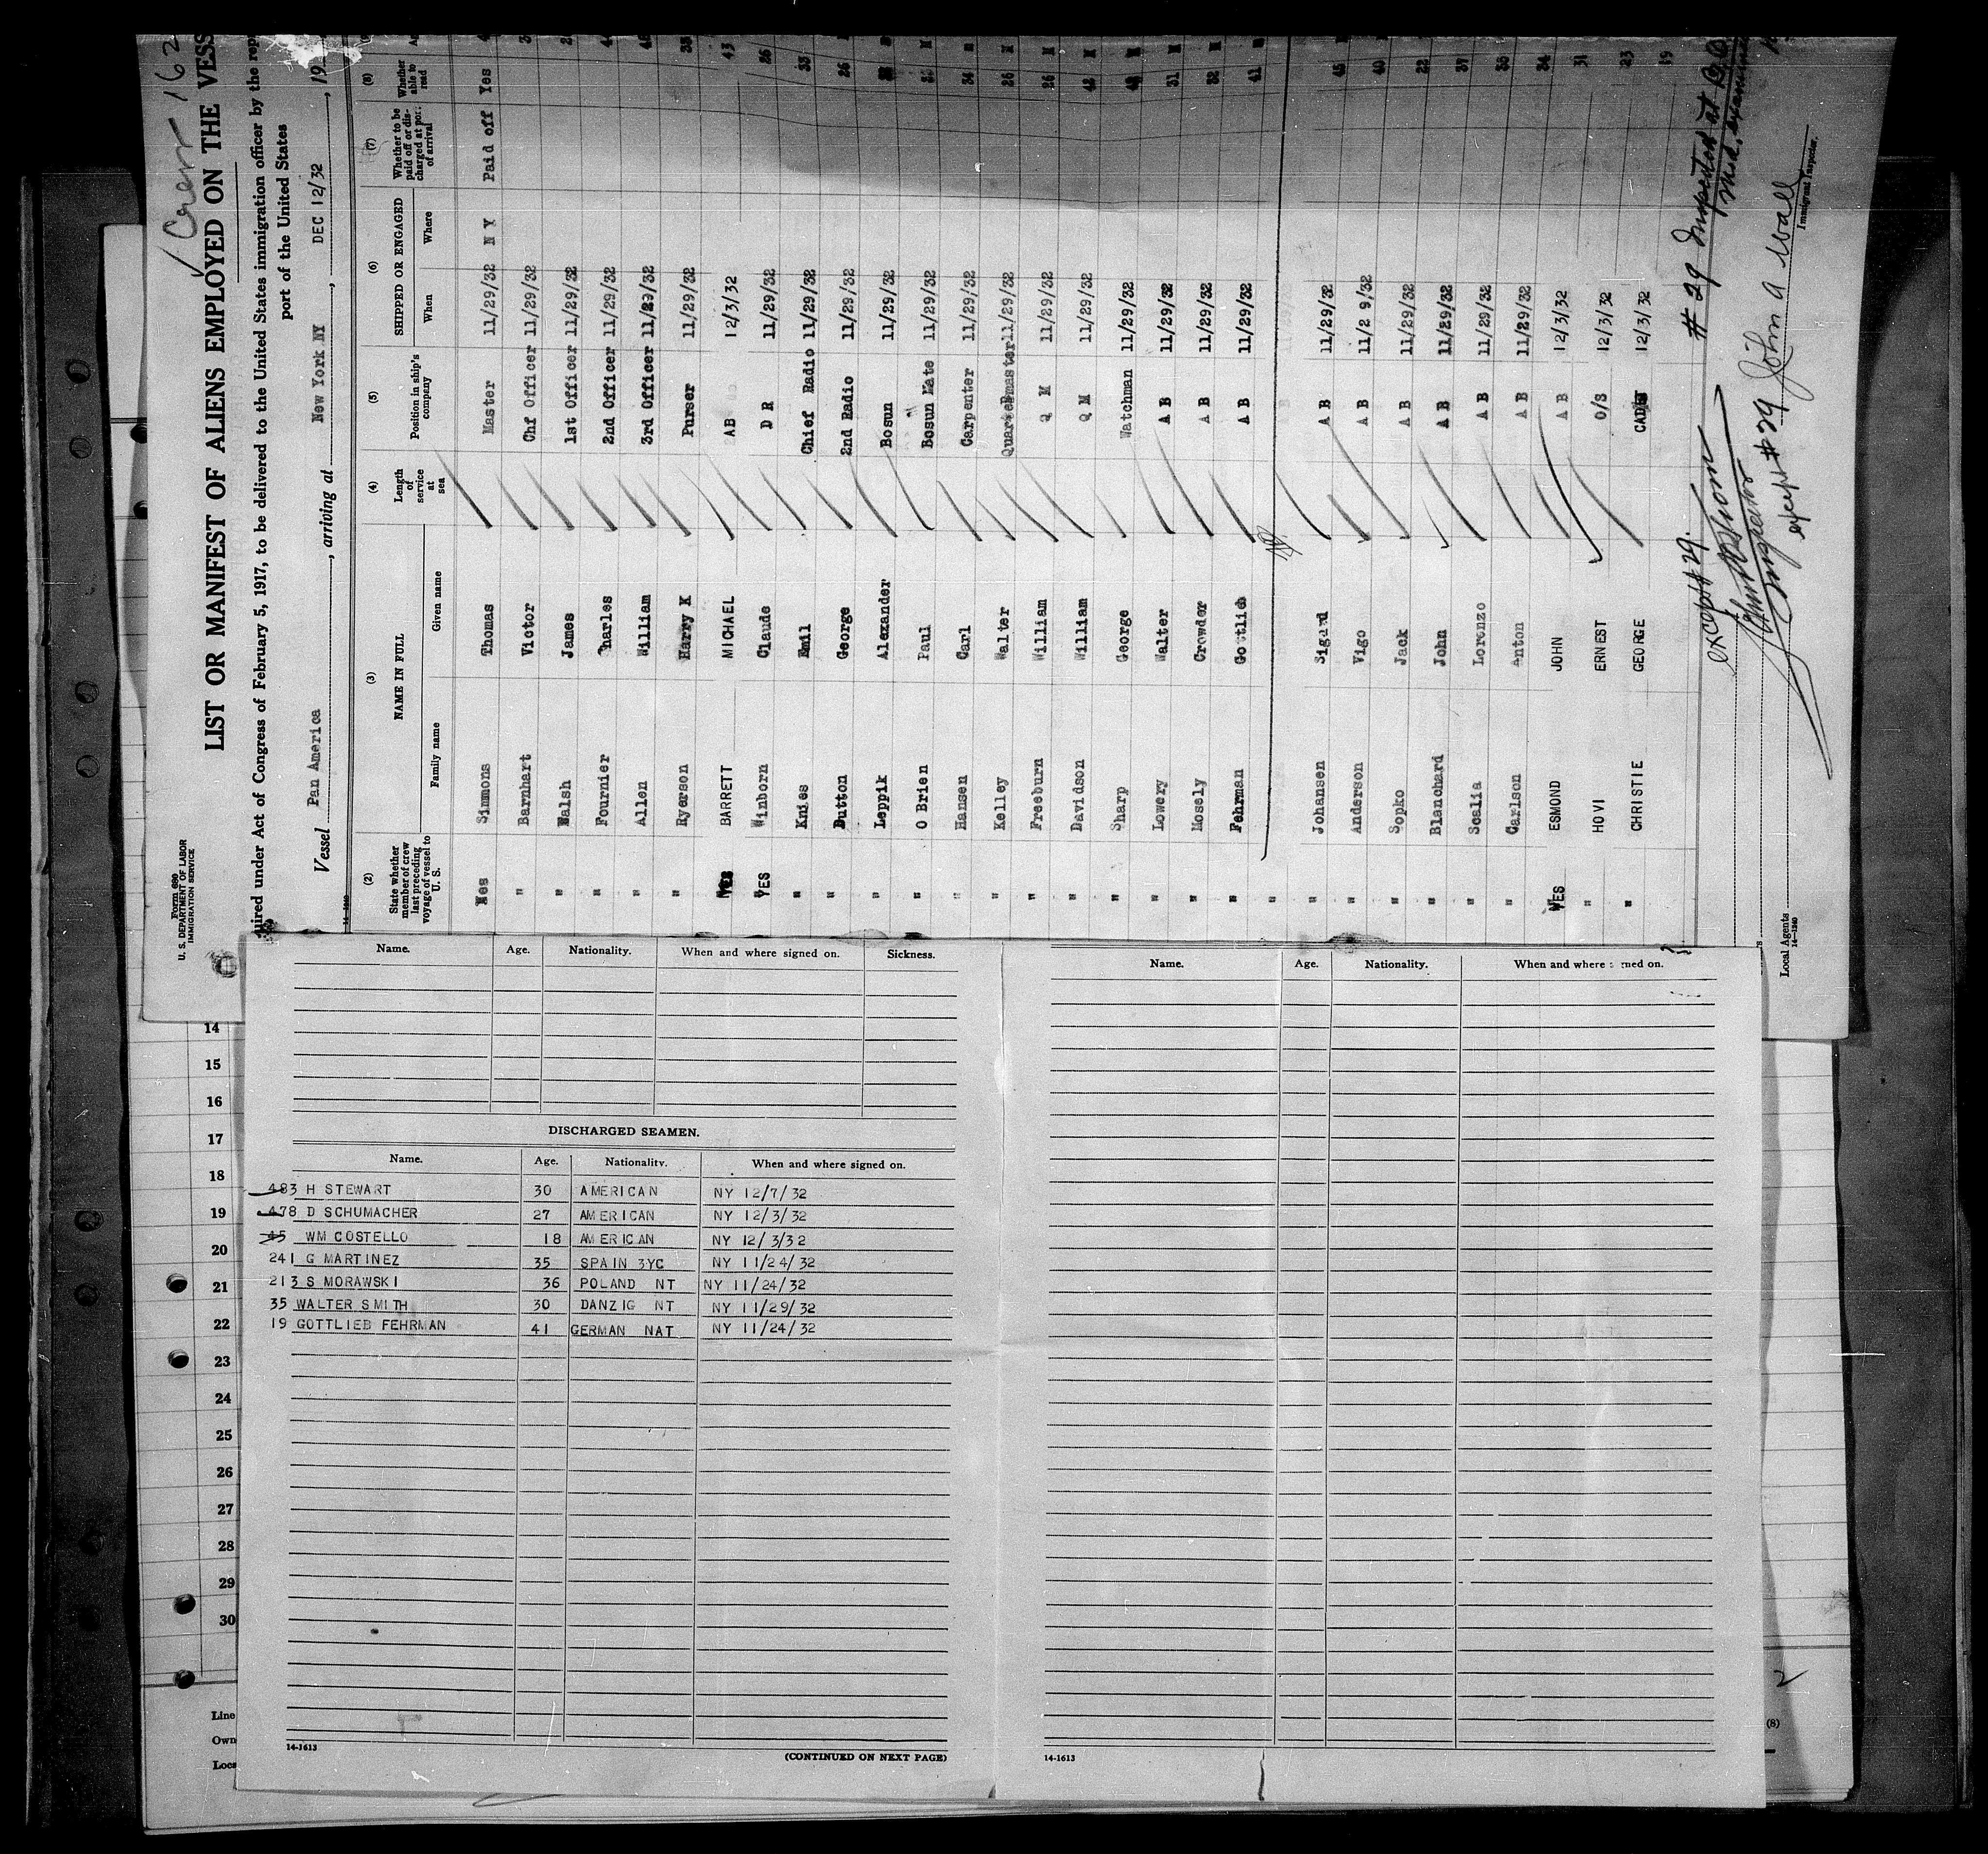 Crew 162
Form 680
U. S. DEPARTMENT OF LABOR
IMMIGRATION SERVICE
LIST OR MANIFEST OF ALIENS EMPLOYED ON THE VESS
uired under Act of Congress of February 5, 1917, to be delivered to the United States immigration officer by the rep
port of the United States
Vessel Pan America, arriving at New York NY, DEC 12/32, 19
(2) (3) (4) (5) (6) (7) (8)
State whether member of crew last preceding voyage of vessel to U. S.
NAME IN FULL
Family name Given name
Length of service at sea
Position in ship's company
SHIPPED OR ENGAGED
When Where
Whether to be paid off or discharged at port of arrival
Whether able to read
Yes Simmons Thomas Master 11/29/32 N Y Paid off Yes
" Barnhart Victor Chf Officer 11/29/32
" Walsh James 1st Officer 11/29/32
" Fournier Charles 2nd Officer 11/29/32
" Allen William 3rd Officer 11/29/32
" Ryerson Harry K Purser 11/29/32
YES BARRETT MICHAEL AB 12/3/32 43
YES Winborn Claude D R 11/29/32 26
" Knies Emil Chief Radio 11/29/32 33
" Dutton George 2nd Radio 11/29/32 26
" Leppik Alexander Bosun 11/29/32
" O Brien Paul Bosun Mate 11/29/32
" Hansen Carl Carpenter 11/29/32 34
" Kelley Walter Quartermaster 11/29/32 26 M
" Freeburn William Q M 11/29/32 26 M
" Davidson William Q M 11/29/32 42 M
" Sharp George Watchman 11/29/32
" Lowery Walter A B 11/29/32 31 M
" Mosely Crowder A B 11/29/32 32 M
" Fehrman Gottlieb A B 11/29/32 41
"
" Johansen Sigurd A B 11/29/32 45
" Anderson Vigo A B 11/2 9/32 40
" Sopko Jack A B 11/29/32 22
" Blanchard John A B 11/29/32 37
" Scalia Lorenzo A B 11/29/32
" Carlson Anton A B 11/29/32 34
YES ESMOND JOHN A B 12/3/32 31
" HOVI ERNEST O/S 12/3/32 23
" CHRISTIE GEORGE CADET 12/3/32 19
except #29.
# 29 Inspected at
except #29 John A Wall
Immigrant Inspector.
Local Agents
14-1240
Name. Age. Nationality. When and where signed on. Sickness.
DISCHARGED SEAMEN.
Name. Age. Nationality. When and where signed on.
483 H STEWART 30 AMERICAN NY 12/7/32
478 D SCHUMACHER 27 AMERICAN NY 12/3/32
45 WM COSTELLO 18 AMERICAN NY 12/3/32
241 G MARTINEZ 35 SPAIN 3YC NY 11/24/32
213 S MORAWSKI 36 POLAND NT NY 11/24/32
35 WALTER SMITH 30 DANZIG NT NY 11/29/32
19 GOTTLIEB FEHRMAN 41 GERMAN NAT NY 11/24/32
14-1613
(CONTINUED ON NEXT PAGE)
Name. Age. Nationality. When and where signed on.
14-1613
14
15
16
17
18
19
20
21
22
23
24
25
26
27
28
29
30
Line
Own
Loca
(8)